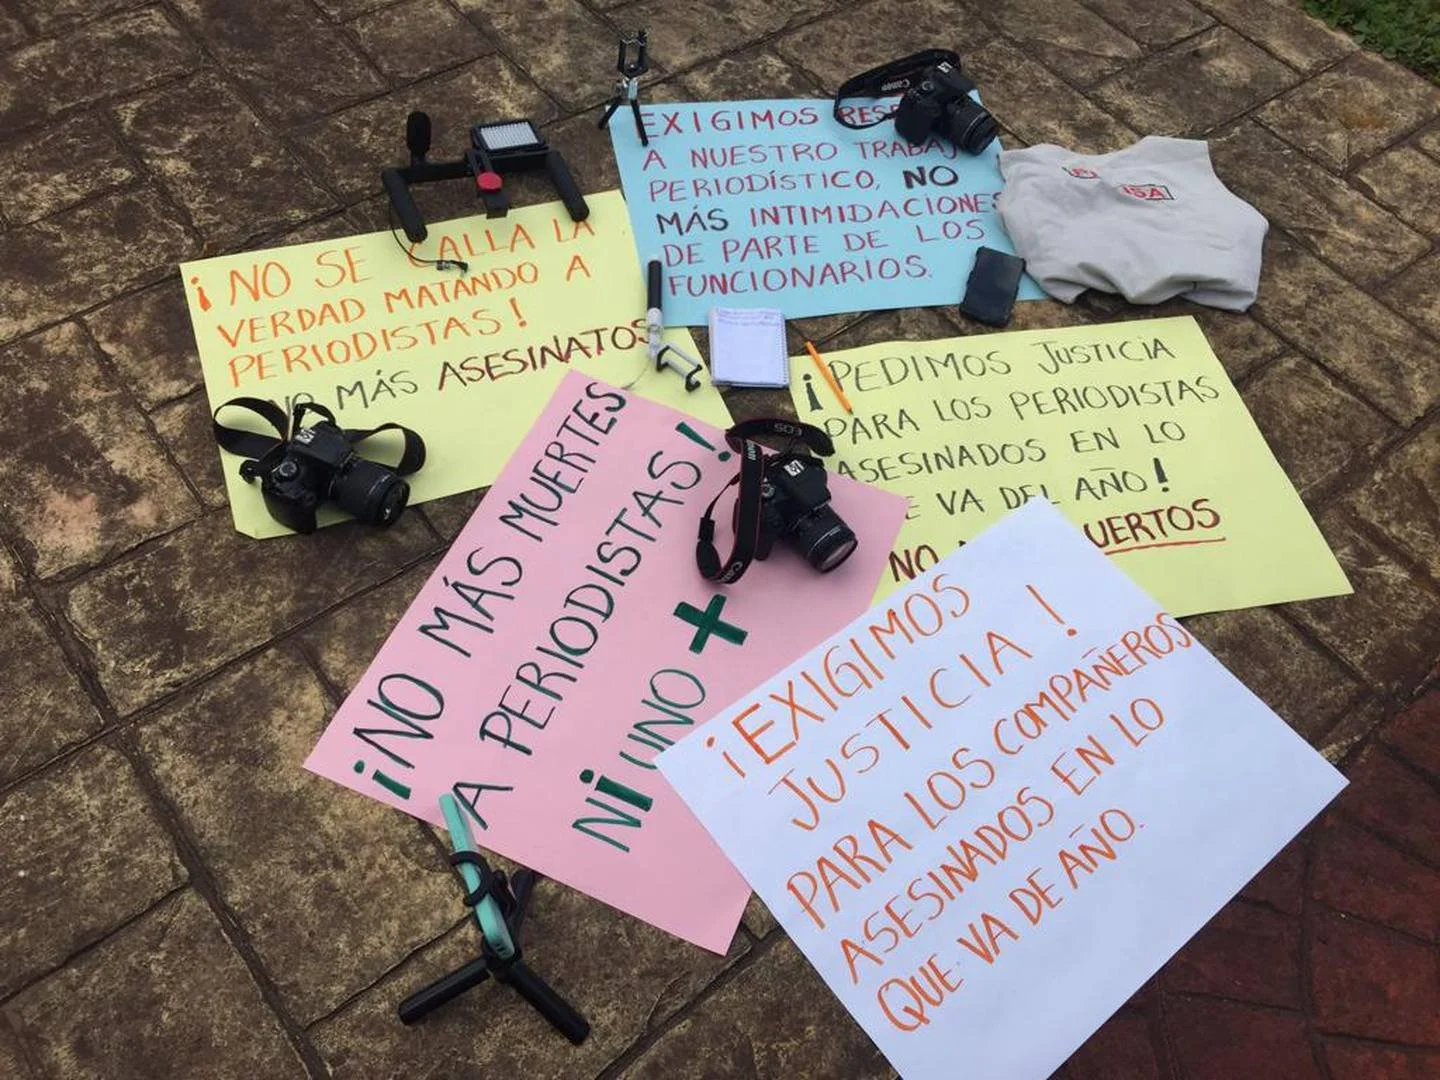 EXIGIMOS
A NUESTRO TRABAJ
PERIODÍSTICO, NO
MÁS INTIMIDACIONES
DE PARTE DE LOS
FUNCIONARIOS.
Canon
¡NO SE CALLA LA
VERDAD MATANDO A
PERIODISTAS!
NO MÁS ASESINATOS
¡PEDIMOS JUSTICIA
PARA LOS PERIODISTAS
ASESINADOS EN LO
E VA DEL AÑO!
NO UERTOS
¡NO MÁS MUERTES
A PERIODISTAS!
NI UNO +
EOS
Canon
¡EXIGIMOS
JUSTICIA!
PARA LOS COMPAÑEROS
ASESINADOS EN LO
QUE VA DE AÑO.